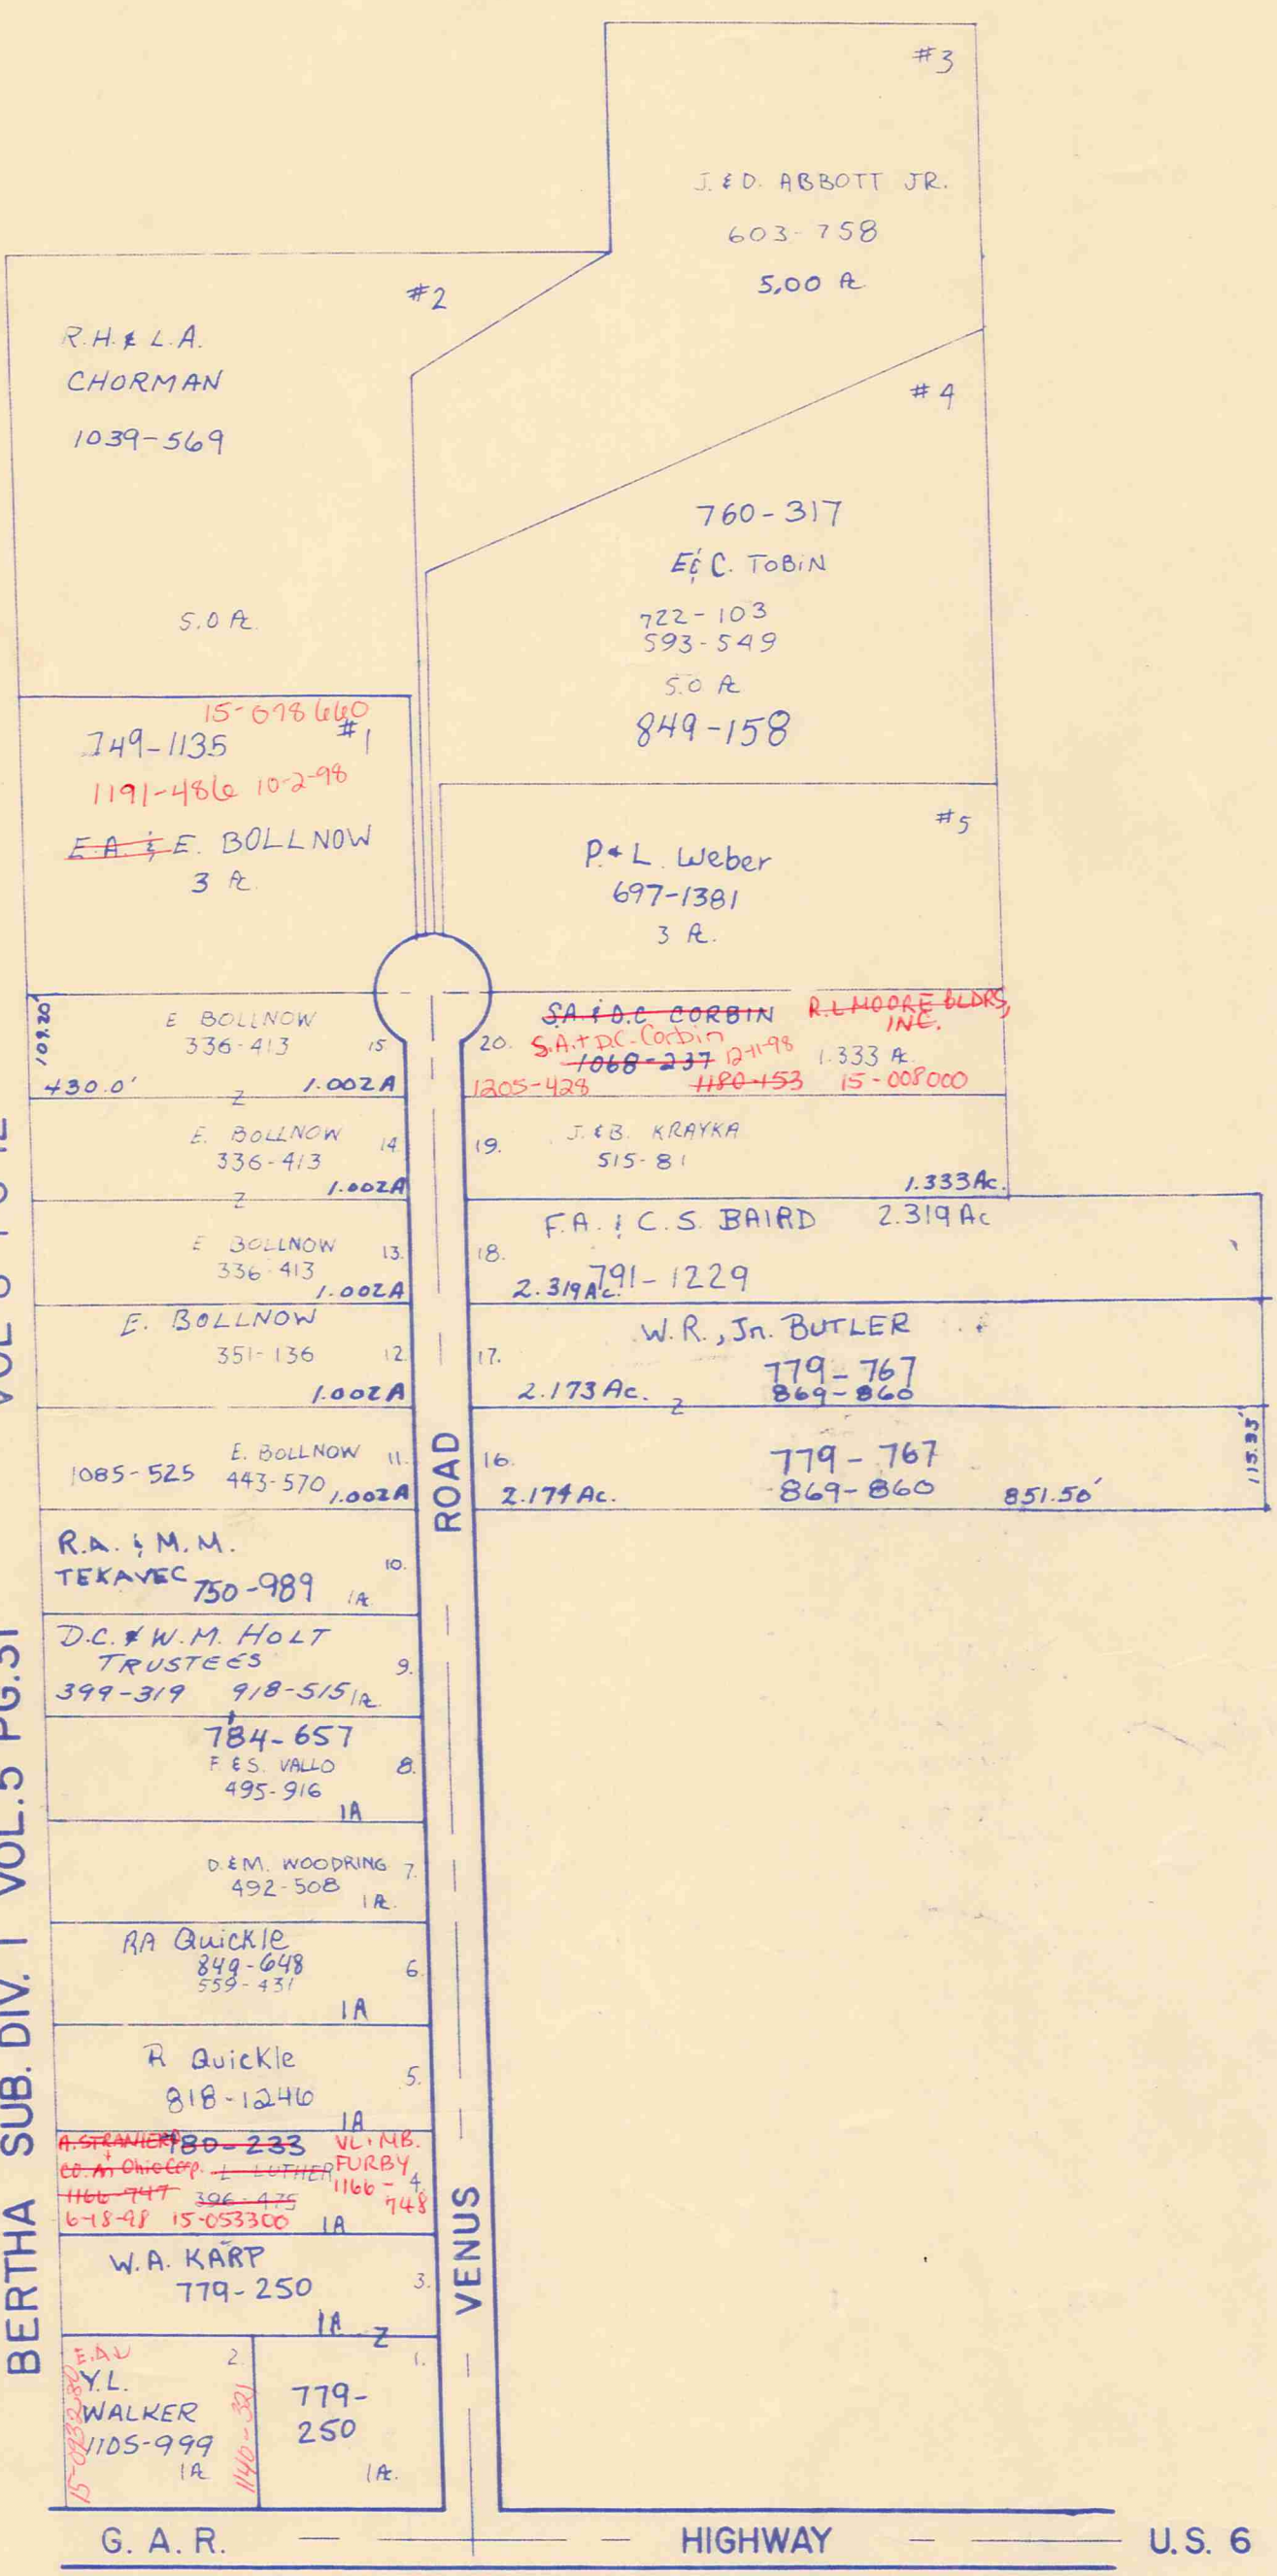 #3
J. & D. ABBOTT JR.
603-758
5.00 A.
#2
R.H. & L.A.
CHORMAN
1039-569
5.0 A.
#4
760-317
E & C. TOBIN
722-103
593-549
5.0 A
849-158
15-078660
749-1135 #1
1191-486 10-2-98
E.A. & E. BOLLNOW
3 A.
#5
P. + L. Weber
697-1381
3 A.
109.20'
E BOLLNOW
336-413 15.
430.0' Z 1.002A
S.A. & D.C CORBIN R.L MOORE BLDRS,
INC.
20. S.A. + D.C. Corbin
1068-237 12-11-98 1.333 A.
1205-428 1180-153 15-008000
E. BOLLNOW 14.
336-413
Z 1.002A
19. J. & B. KRAYKA
515-81
1.333 Ac.
E BOLLNOW 13.
336-413
1.002A
F.A. & C.S. BAIRD 2.319 Ac
18.
2.319 Ac. 791-1229
E. BOLLNOW
351-136 12.
1.002A
W.R., Jr. BUTLER
17. 779-767
2.173 Ac. Z 869-860
E. BOLLNOW 11.
1085-525 443-570 1.002A
16. 779-767
2.174 Ac. 869-860 851.50'
115.35'
R.A. & M.M.
TEKAVEC 750-989 10.
1A
D.C. & W.M. HOLT
TRUSTEES 9.
399-319 918-515 1A.
784-657
F. & S. VALLO 8.
495-916
1A
D. & M. WOODRING 7.
492-508
1A.
RA Quickle
849-648 6.
559-431
1A
R Quickle
818-1246 5.
1A
A. STRANIERO 780-233 VL & MB.
CO. An Ohio Corp. L LUTHER FURBY
1166-747 396-475 1166- 4.
748
6-18-98 15-053300 1A
W.A. KARP
779-250 3.
1A Z
E.A.
Y.L. 2.
WALKER
1105-999
1A
1140-321
1.
779-
250
1A.
ROAD
VENUS
BERTHA SUB. DIV. 1 VOL. 5 PG. 31
G. A. R. HIGHWAY U.S. 6